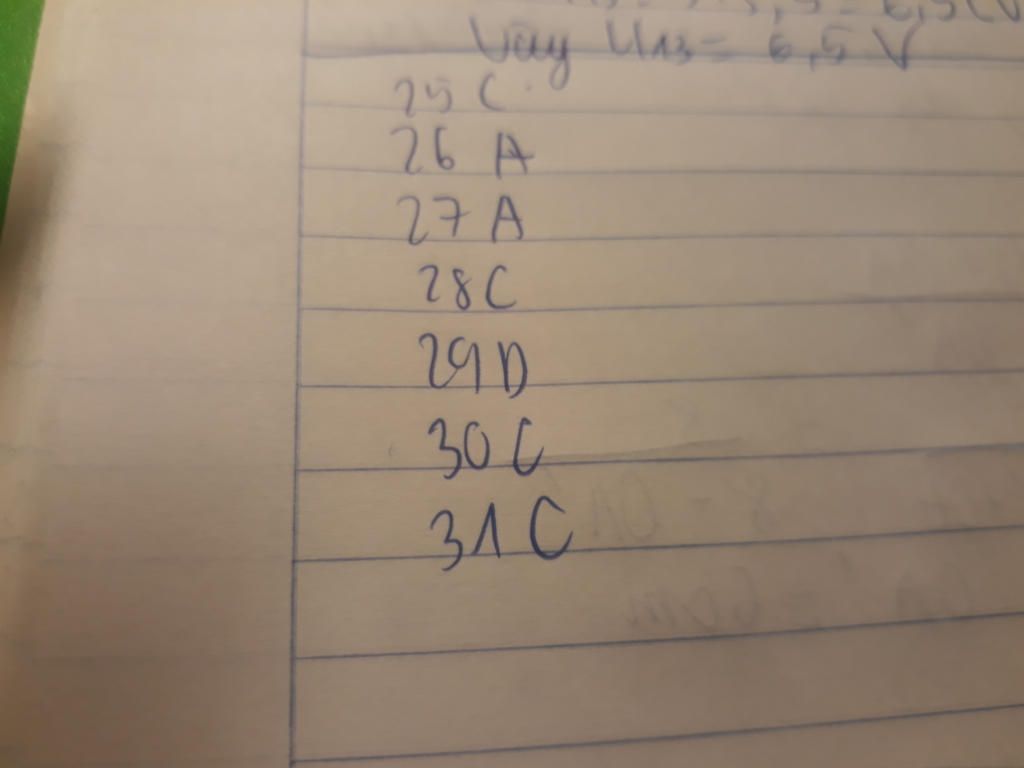 Vậy U13 = 6,5 V
25 C
26 A
27 A
28 C
29 D
30 C
31 C